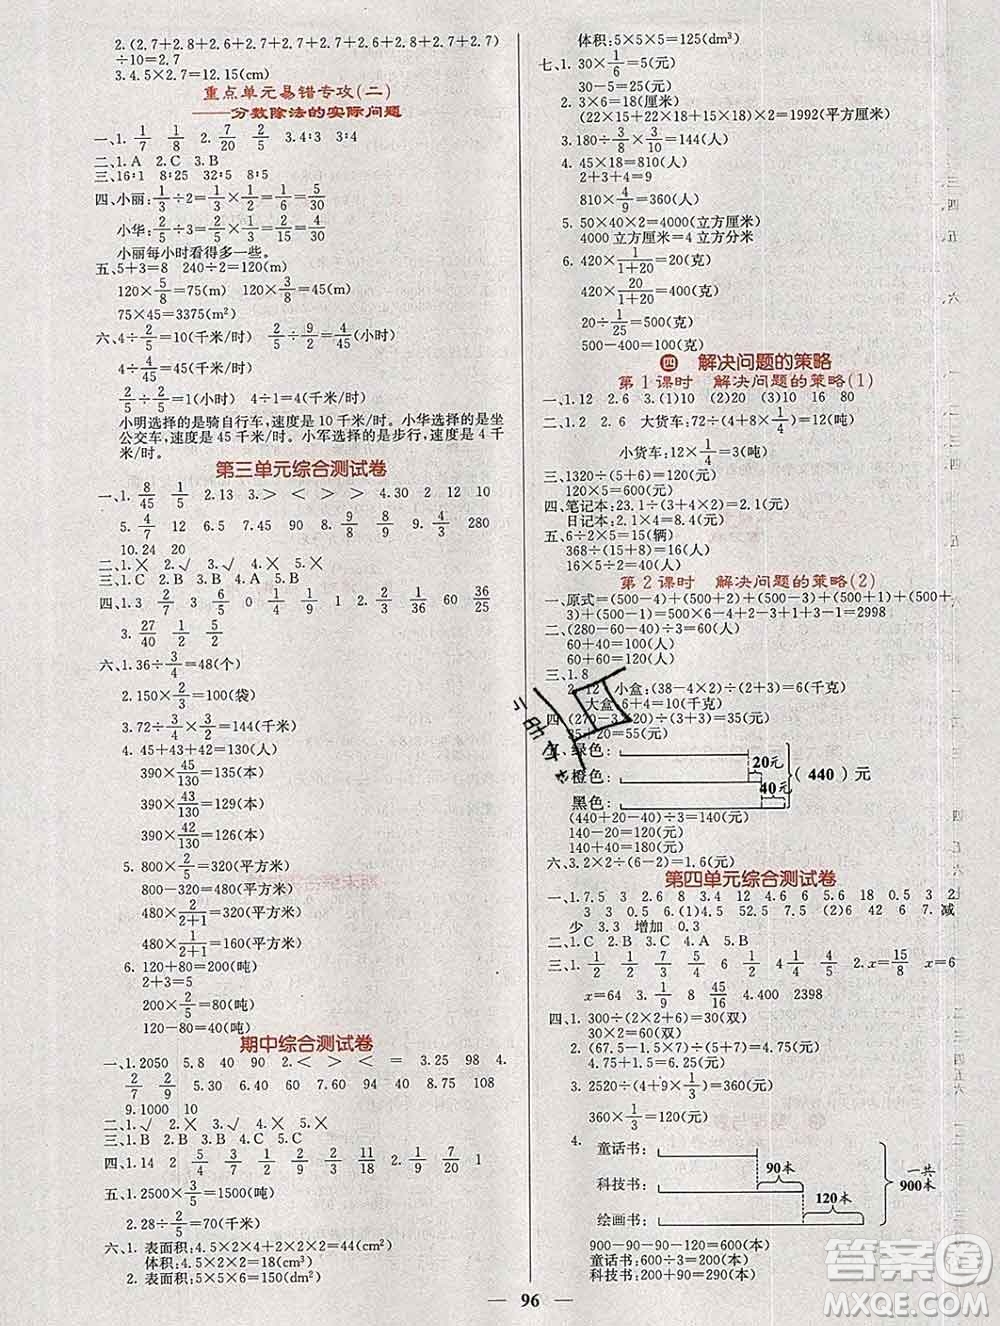 2.(2.7+2.8+2.6+2.7+2.7+2.7+2.6+2.8+2.7+2.7)
÷10=2.7
3.4.5×2.7=12.15(cm)
重点单元易错专攻(二)
——分数除法的实际问题
一、1. 1/7 1/7 2. 7/20 1/5 3.4:3 3:4
二、1.A 2.C 3.B
三、16:1 8:25 32:5 8:5
四、小丽:1/3÷2=1/3×1/2=1/6=5/30
小华:2/5÷3=2/5×1/3=2/15=4/30
小丽每小时看得多一些。
五、5+3=8 240÷2=120(m)
120×5/8=75(m) 120×3/8=45(m)
75×45=3375(m²)
六、4÷2/5=10(千米/时) 2/5÷9/2=4/45(小时)
4÷4/45=45(千米/时) 4÷1=4(千米/时)
小明选择的是骑自行车,速度是10千米/时。小华选择的是坐
公交车,速度是45千米/时。小军选择的是步行,速度是4千
米/时。
第三单元综合测试卷
一、1. 8/45 1/5 2.13 3.> < > > 4.30 2 12 10
5. 4/7 12 6.5 7.45 90 8. 9/8 8/9 9. 4/3 280
10.24 20
二、1.× 2.√ 3.× 4.√ 5.×
三、1.C 2.B 3.B 4.C 5.A
四、1.3 2/7 3 6/5 0 1/4 1/10 2. 1/36 60 9/25
3. 27/40 1/2 2/5
六、1.36÷3/4=48(个)
2.150×2/3=100(袋)
3.72÷1/2=144(千米)
4.45+43+42=130(人)
390×45/130=135(本)
390×43/130=129(本)
390×42/130=126(本)
5.800×2/5=320(平方米)
800-320=480(平方米)
480×2/(2+1)=320(平方米)
480×1/(2+1)=160(平方米)
6.120+80=200(吨)
2+3=5
200×2/5=80(吨)
120-80=40(吨)
期中综合测试卷
一、1.2050 5.8 40 90 2.> > < = 3.25 98 4.
9.1000 10
二、1.√ 2.√ 3.× 4.× 5.×
三、1.B 2.B 3.C 4.A 5.C
五、1.2500×3/5=1500(吨)
2.28÷2/5=70(千米)
六、1. 表面积:4.5×2×4+2×2×2=44(cm²)
体积:4.5×2×2=18(cm³)
2. 表面积:5×5×6=150(dm²)
体积:5×5×5=125(dm³)
七、1.30×1/6=5(元)
30-5=25(元)
2.3×6=18(厘米)
(22×15+22×18+15×18)×2=1992(平方厘米)
3.180÷3/8×3/10=144(人)
4.45×18=810(人)
2+3+4=9
810×4/9=360(人)
5.50×40×2=4000(立方厘米)
4000立方厘米=4立方分米
6.420×1/(1+20)=20(克)
420×20/(1+20)=400(克)
20÷1/25=500(克)
500-400=100(克)
四 解决问题的策略
第1课时 解决问题的策略(1)
一、1.12 2.6 3.(1)10 (2)20 (3)10 16 80
二、1.2 2.6 大货车:72÷(4+8×1/4)=12(吨)
小货车:12×1/4=3(吨)
三、1320÷(5+6)=120(元)
120×5=600(元)
四、笔记本:23.1÷(3+4×2)=2.1(元)
日记本:2.1×4=8.4(元)
五、6÷2×5=15(辆)
368÷(15+8)=16(人)
16×5÷2=40(人)
第2课时 解决问题的策略(2)
一、原式=(500-4)+(500+2)+(500-3)+(500+1)+(500+
3)+(500-1)=500×6-4+2-3+1+3-1=2998
二、(280-60-40)÷3=60(人)
60+40=100(人)
60+60=120(人)
三、1.8
2.12 小盒:(38-4×2)÷(2+3)=6(千克)
大盒:6+4=10(千克)
四、(270-3×20)÷(3+3)=35(元)
35+20=55(元)
五、绿色:
橙色:
黑色:
20元
40元
(440)元
(440+20-40)÷3=140(元)
140-20=120(元)
140+40=180(元)
六、3.2×2÷(6-2)=1.6(元)
第四单元综合测试卷
一、1.7.5 3 2.6 8 3.4 12 4.25 15 5.18 0.5 3 2
3 3 0.5 6.(1)4 52.5 7.5 (2)6 42 6 7.减
少 3.3 增加 0.3
二、1.C 2.B 3.A 4.C 5.B
四、1.300÷(2×2+6)=30(双)
30×2=60(双)
2.(67.5-1.5×7)÷(5+7)=4.75(元)
4.75+1.5=6.25(元)
3.2520÷(4+9×1/3)=360(元)
360×1/3=120(元)
4.
童话书:
科技书:
绘画书:
90本
120本
一共
900本
900-90-90-120=600(本)
童话书:600÷3=200(本)
科技书:200+90=290(本)
96
答案圈
MXQE.COM